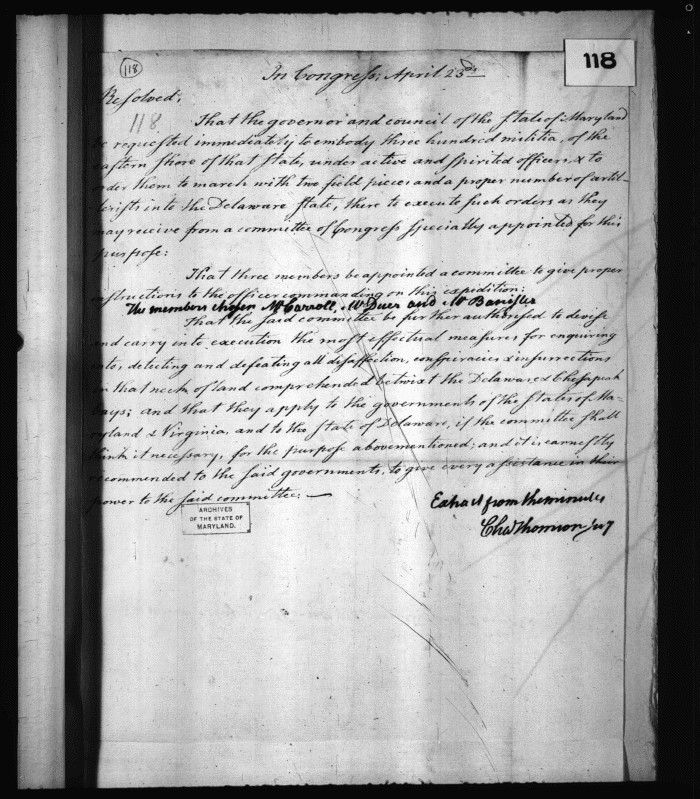 118
118
In Congress, April 23d
Resolved,
118.
That the governor and council of the State of Maryland
be requested immediately to embody three hundred militia, of the
eastern shore of that State, under active and spirited officers, & to
order them to march with two field pieces and a proper number of artil-
lerists into the Delaware State, there to execute such orders as they
may receive from a committee of Congress specially appointed for this
purpose:
That three members be appointed a committee to give proper
instructions to the officer commanding on this expedition:
The members chosen Mr Carroll, Mr Duer and Mr Banister
That the said committee be further authorised to devise
and carry into execution the most effectual measures for enquiring
into, detecting and defeating all disaffection, conspiracies & insurrections
on that neck of land comprehended betwixt the Delaware & Chesapeak
bays; and that they apply to the governments of the States of Ma-
ryland & Virginia, and to the State of Delaware, if the committee shall
think it necessary, for the purpose abovementioned; and it is earnestly
recommended to the said governments, to give every assistance in their
power to the said committee:
Extract from the minutes
Chas Thomson Secy
ARCHIVES
OF THE STATE OF
MARYLAND.